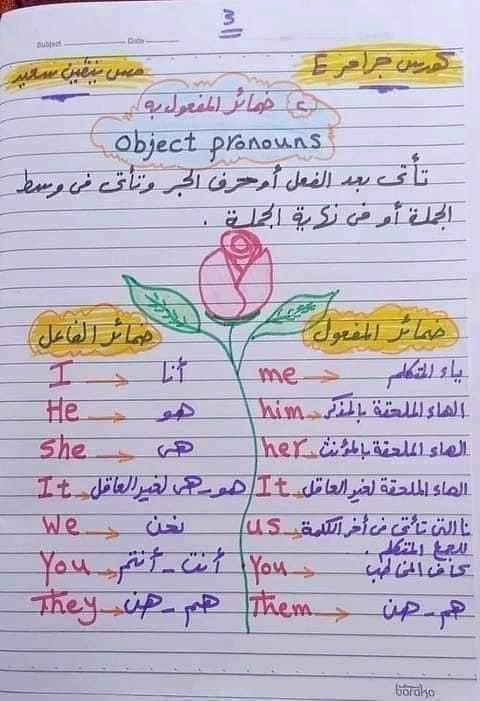 3
Subject Date
كورس جرامر E
مس يقين سعيد
٢ ضمائر المفعول به
Object pronouns
تأتى بعد الفعل أو حرف الجر وتأتى فى وسط
الجملة أو فى نهاية الجملة .
ضمائر الفاعل ضمائر المفعول
I → أنا me → ياء المتكلم
He → هو him → الهاء الملحقة بالمذكر
She → هى her → الهاء الملحقة بالمؤنث
It → هو - هى لغير العاقل It → الهاء الملحقة لغير العاقل
we → نحن us → نا التى تأتى فى أخر الكلمة
للجمع المتكلم .
You → أنت - أنتم You → كاف المخاطب
They → هم - هن Them → هم - هن
barako